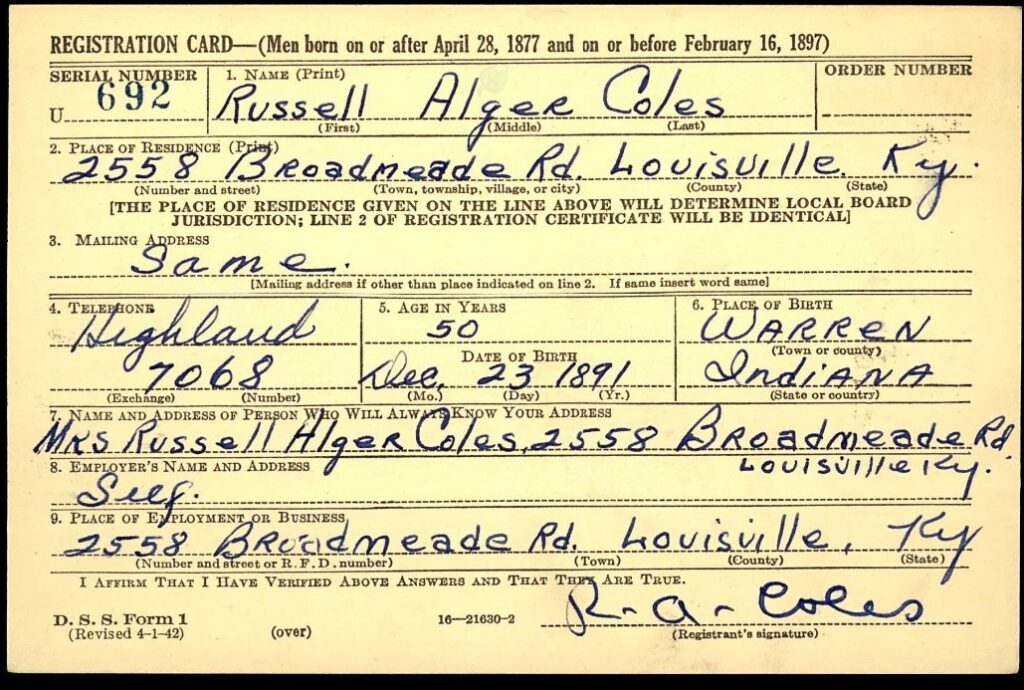 REGISTRATION CARD—(Men born on or after April 28, 1877 and on or before February 16, 1897)
SERIAL NUMBER 1. NAME (Print) ORDER NUMBER
U 692 Russell Alger Coles
(First) (Middle) (Last)
2. PLACE OF RESIDENCE (Print)
2558 Broadmeade Rd. Louisville. Ky.
(Number and street) (Town, township, village, or city) (County) (State)
[THE PLACE OF RESIDENCE GIVEN ON THE LINE ABOVE WILL DETERMINE LOCAL BOARD
JURISDICTION; LINE 2 OF REGISTRATION CERTIFICATE WILL BE IDENTICAL]
3. MAILING ADDRESS
Same.
[Mailing address if other than place indicated on line 2. If same insert word same]
4. TELEPHONE 5. AGE IN YEARS 6. PLACE OF BIRTH
Highland 50 WARREN
DATE OF BIRTH (Town or county)
7068 Dec. 23 1891 Indiana
(Exchange) (Number) (Mo.) (Day) (Yr.) (State or country)
7. NAME AND ADDRESS OF PERSON WHO WILL ALWAYS KNOW YOUR ADDRESS
Mrs Russell Alger Coles, 2558 Broadmeade Rd
Louisville Ky.
8. EMPLOYER'S NAME AND ADDRESS
Self.
9. PLACE OF EMPLOYMENT OR BUSINESS
2558 Broadmeade Rd. Louisville, Ky
(Number and street or R. F. D. number) (Town) (County) (State)
I AFFIRM THAT I HAVE VERIFIED ABOVE ANSWERS AND THAT THEY ARE TRUE.
R-A-Coles
D. S. S. Form 1
(Revised 4-1-42) (over) 16—21630-2 (Registrant's signature)